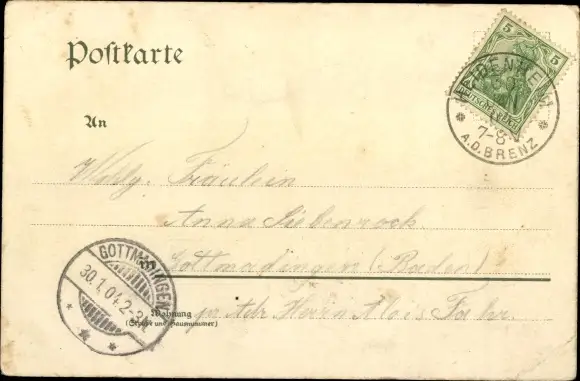 Postkarte
5 5
DEUTSCHES REICH
HEIDENHEIM
7-8
A.D. BRENZ
An
Fräulein
Anna Siebenrock
GOTTMADINGEN
30.1.04.2-3
in Gottmadingen (Baden)
Wohnung
(Straße und Hausnummer)
pr Adr. Herrn Alois Fahr.